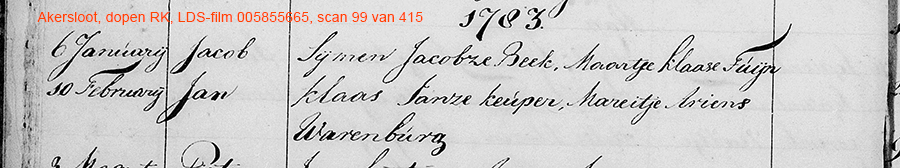 Akersloot, dopen RK, LDS-film 005855665, scan 99 van 415
1783.
6 Januarij Jacob Sijmen Jacobze Beek, Maartje Klaase Tuijn
10 Februarij Jan Klaas Janze Keuper, Mareitje Ariens
Warenburg